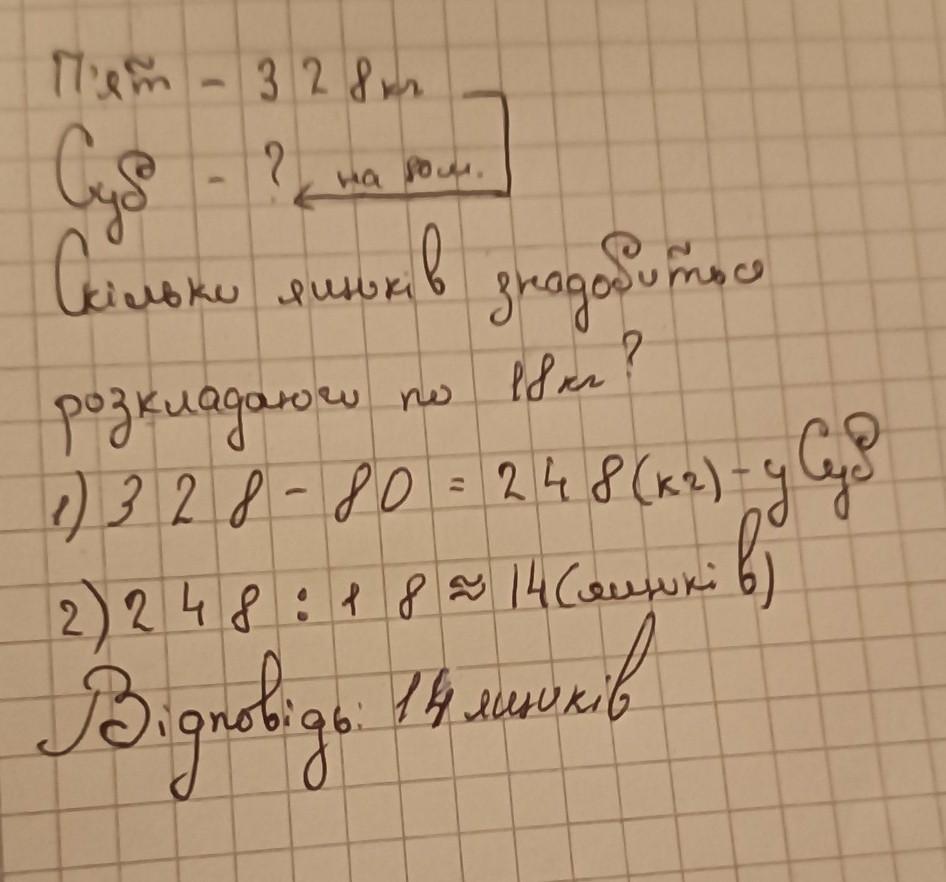 П'ят - 328кг
Суб - ? на
Скільки ящиків знадобиться
розкладаючи по 18кг?
1) 328 - 80 = 248(кг) - у Суб
2) 248 : 18 ≈ 14(ящиків)
Відповідь: 14 ящиків